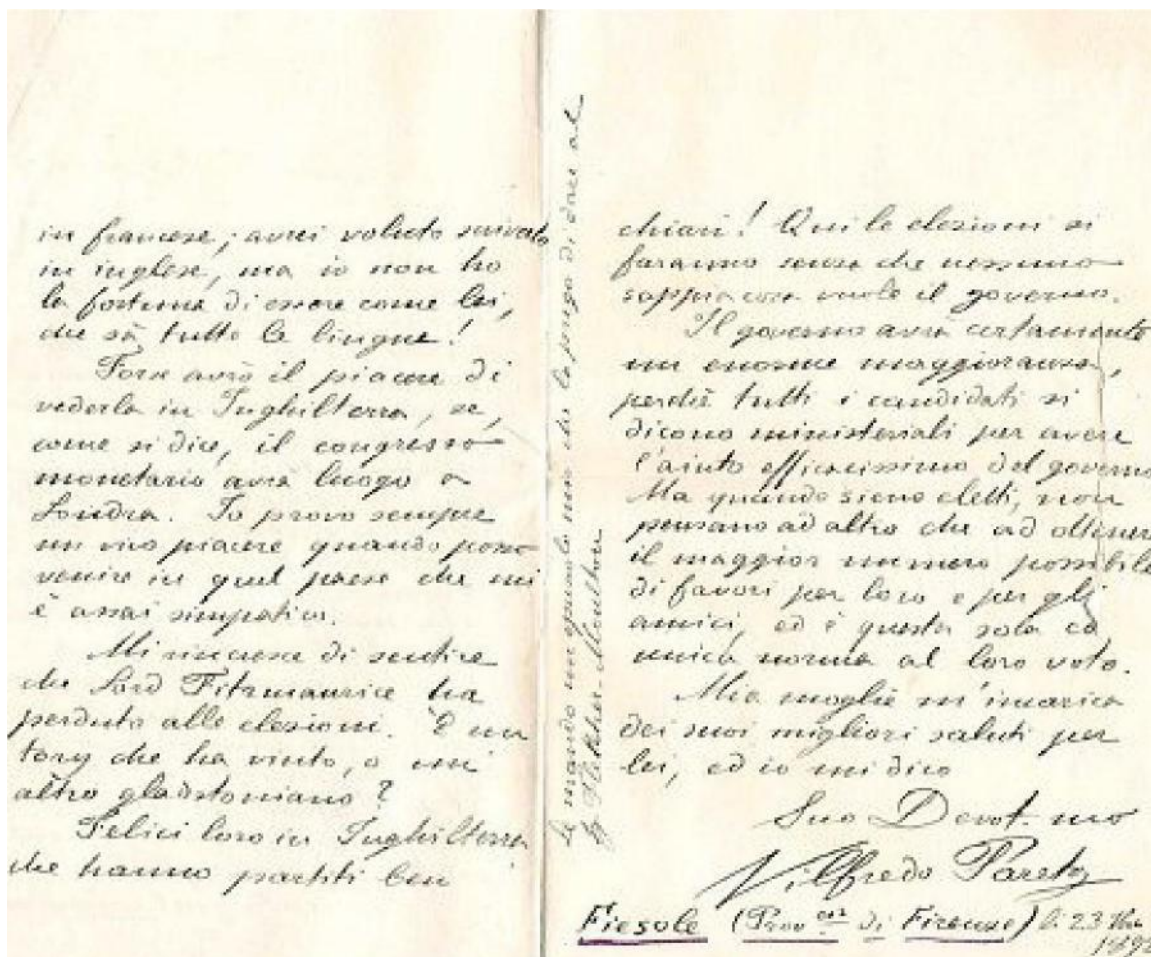 in francese; avrei voluto scriverlo
in inglese, ma io non ho
la fortuna di essere come lei,
che sà tutte le lingue!
Forse avrò il piacere di
vederla in Inghilterra, se,
come si dice, il congresso
monetario avrà luogo a
Londra. Io provo sempre
un vivo piacere quando posso
venire in quel paese che mi
è assai simpatico.
Mi rincresce di sentire
che Lord Fitzmaurice ha
perduto alle elezioni. È un
tory che ha vinto, o un
altro gladstoniano?
Felici loro in Inghilterra
che hanno partiti ben
Le mando un che la prego di dare al
Fletcher-Moulton
chiari! Qui le elezioni si
faranno senza che nessuno
sappia cosa vuole il governo.
Il governo avrà certamente
un enorme maggioranza,
perchè tutti i candidati si
dicono ministeriali per avere
l'aiuto efficacissimo del governo.
Ma quando sieno eletti, non
pensano ad altro che ad ottenere
il maggior numero possibile
di favori per loro e per gli
amici, ed è questa sola ed
unica norma al loro voto.
Mia moglie m'incarica
dei suoi migliori saluti per
lei, ed io mi dico
Suo Devot.mo
Vilfredo Pareto
Fiesole (Prov di Firenze) li 23